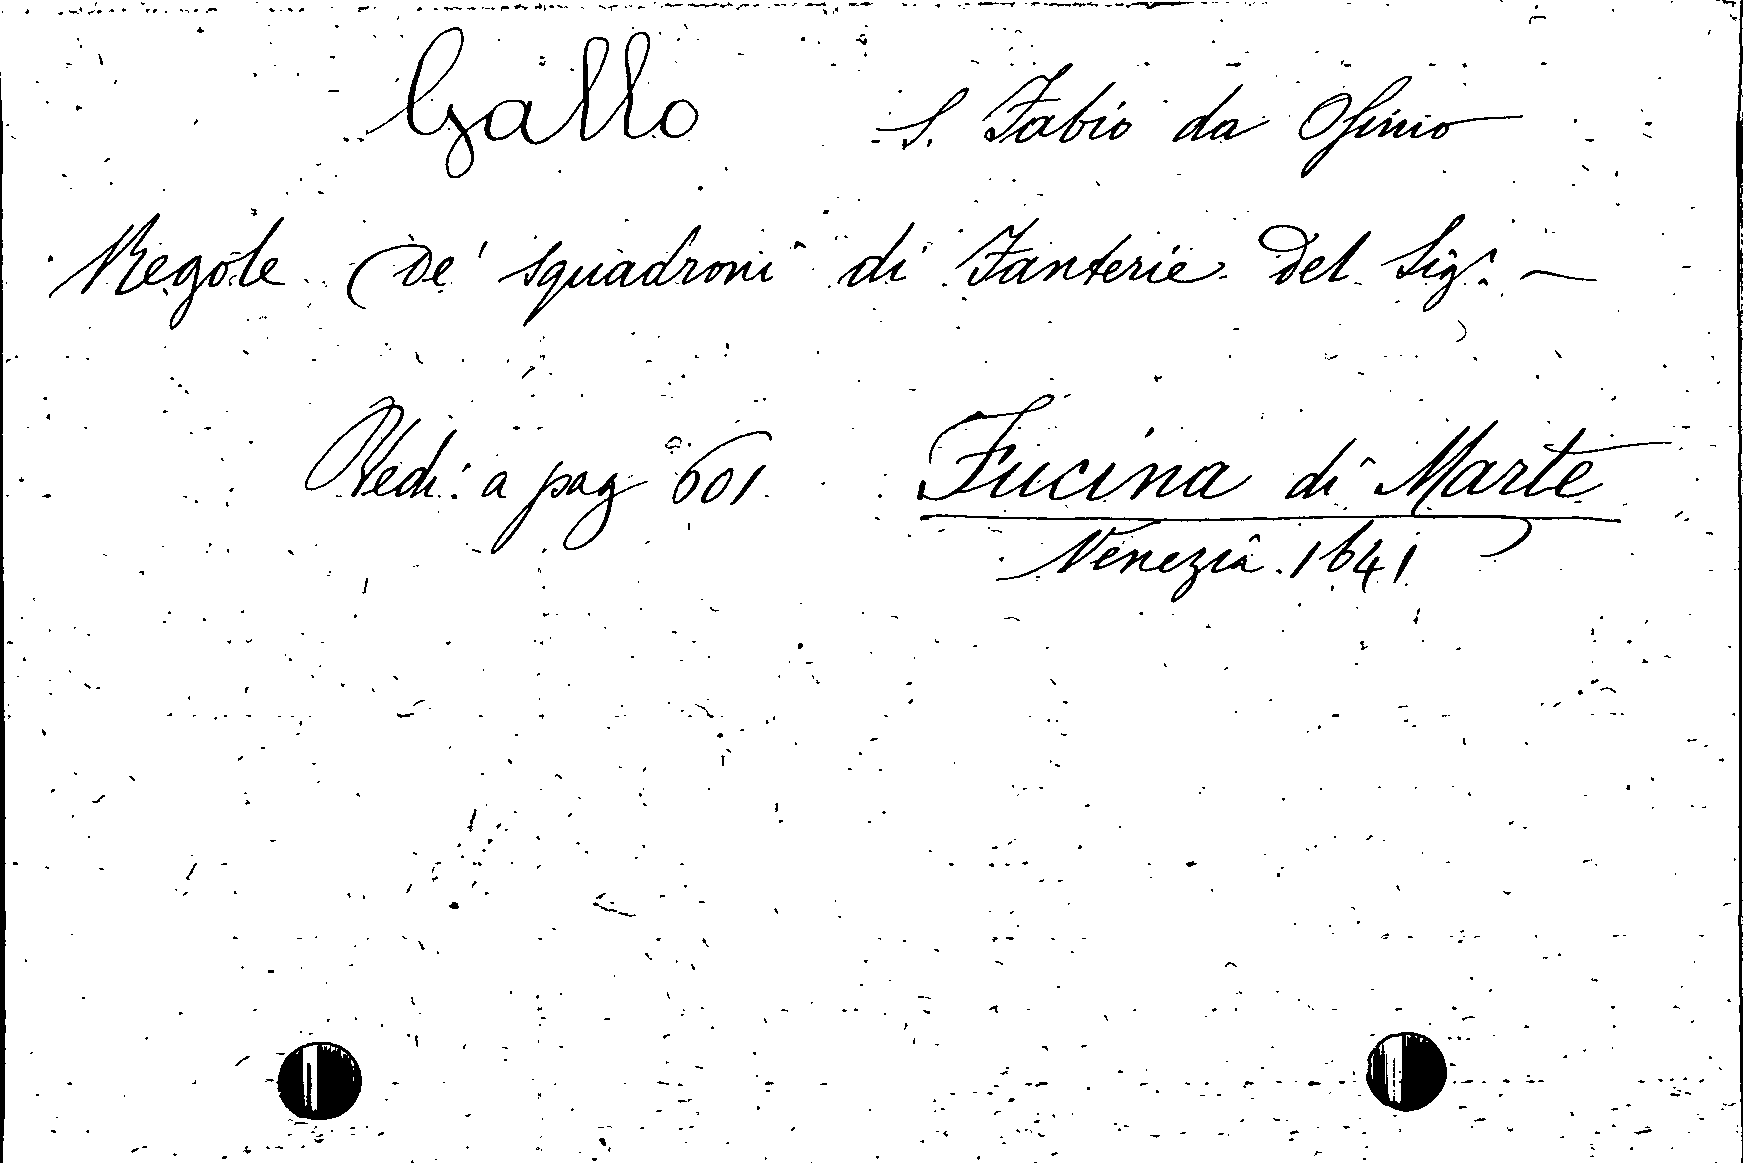 Gallo S. Fabio da Osimo
Regole (De' squadroni di Fanterie Del Sigr. —
Vedi: a pag 601 Fucina di Marte
Venezia 1641